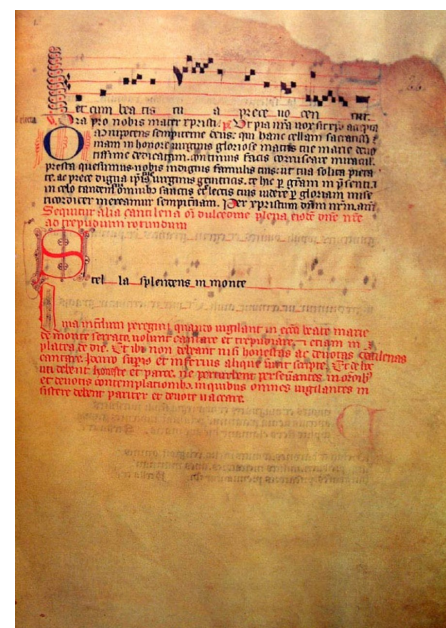 et cum bea tis tu a prece uo cen tur.
Ora pro nobis mater xpristi. Ut pia nra
Omnipotens sempiterne deus: qui hanc cellam sacratissi
mam in honore uirginis gloriose matris tue marie deuo
tissime dedicatam. continuis facis coruscare miraculis.
presta quesumus nobis indignis famulis tuis: ut tua solita pieta
te. ac prece digna ipius uirginis genitricis. te hic p gram in psenti.
in celo tandem cum omnibus sanctis et electis tuis uidere p gloriam mise
ricorditer mereamur sempiternam. Per xpristum dnm nrm. am.
Sequitur alia cantilena oi dulcedine plena eiusde dne nre
ad trepudium rotundum
Stel la splendens in monte
Quia interdum peregrini quando uigilant in ecca beate marie
de monte serrato uolunt cantare et trepudiare. et etiam in
platea de die. Et ibi non debeant nisi honestas ac deuotas cantilenas
cantare. Idcirco supius et inferius alique sunt scripte. Et de hoc
uti debent honeste et parce. ne perturbent perseuerantes in oronibz
et deuotis contemplationibz in quibus omnes uigilantes in
sistere debent pariter et deuote uaccare.